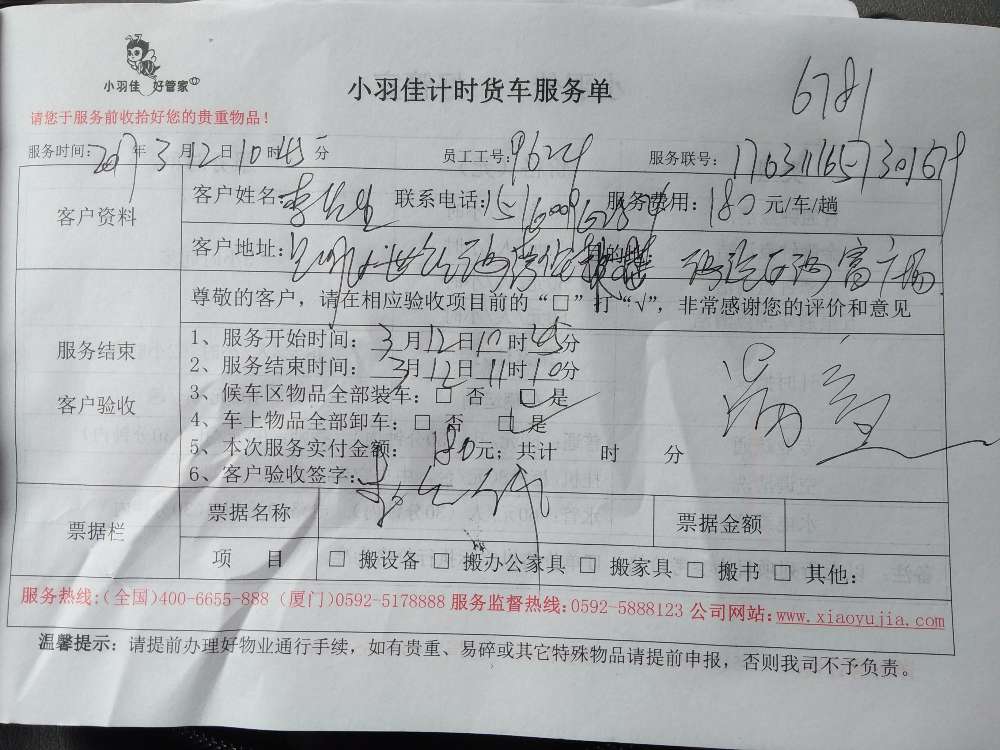 小羽佳 好管家
小羽佳计时货车服务单
6781
请您于服务前收拾好您的贵重物品！
服务时间：2017年3月12日10时45分 员工工号：9624 服务联号：
客户资料
客户姓名：李先生 联系电话： 服务费用：180元/车/趟
客户地址：
尊敬的客户，请在相应验收项目前的“□”打“√”，非常感谢您的评价和意见
服务结束
客户验收
1、服务开始时间：3月12日10时45分
2、服务结束时间：3月12日11时10分
3、候车区物品全部装车：□ 否 □ 是
4、车上物品全部卸车：□ 否 □ 是
5、本次服务实付金额：180元；共计 时 分
6、客户验收签字：
满意
票据栏
票据名称 票据金额
项 目 □ 搬设备 □ 搬办公家具 □ 搬家具 □ 搬书 □ 其他：
服务热线：（全国）400-6655-888（厦门）0592-5178888 服务监督热线：0592-5888123 公司网站：www.xiaoyujia.com
温馨提示：请提前办理好物业通行手续，如有贵重、易碎或其它特殊物品请提前申报，否则我司不予负责。